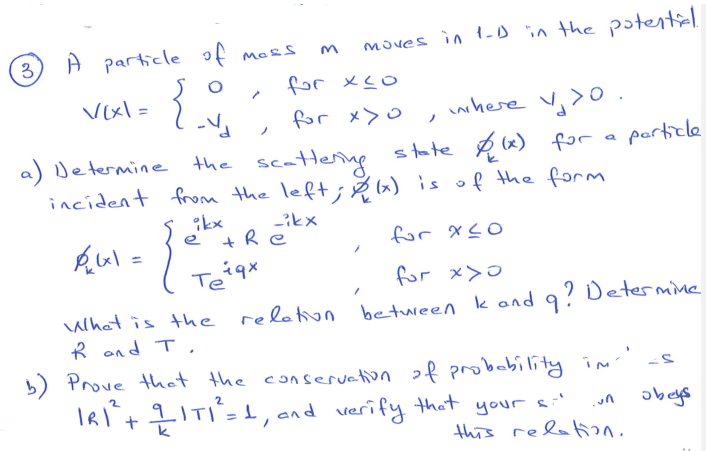 ③ A particle of mass m moves in 1-D in the potential
V(x) = { 0 , for x≤0
-V_d , for x>0 , where V_d>0 .
a) Determine the scattering state ϕ_k(x) for a particle
incident from the left; ϕ_k(x) is of the form
ϕ_k(x) = { e^{ikx} + R e^{-ikx} , for x≤0
Te^{iqx} , for x>0
What is the relation between k and q? Determine
R and T.
b) Prove that the conservation of probability
|R|² + q/k |T|² = 1, and verify that your obeys
this relation.